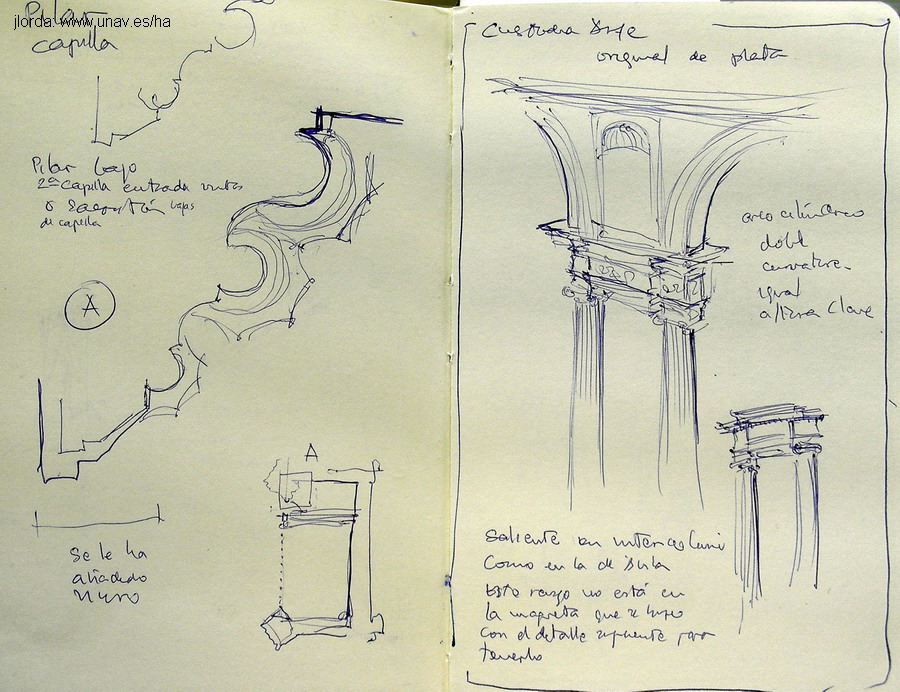 jlorda: www.unav.es/ha
Pilar
capilla
Pilar bajo
2ª capilla entrada
de capilla
A
A
Se le ha
añadido
muro
Custodia
original de plata
arco cilíndrico
doble
curvatura
igual
altura clave
Saliente en
como en la de
Esto rasgo no está en
la maqueta que se hizo
con el detalle siguiente para
tenerlo